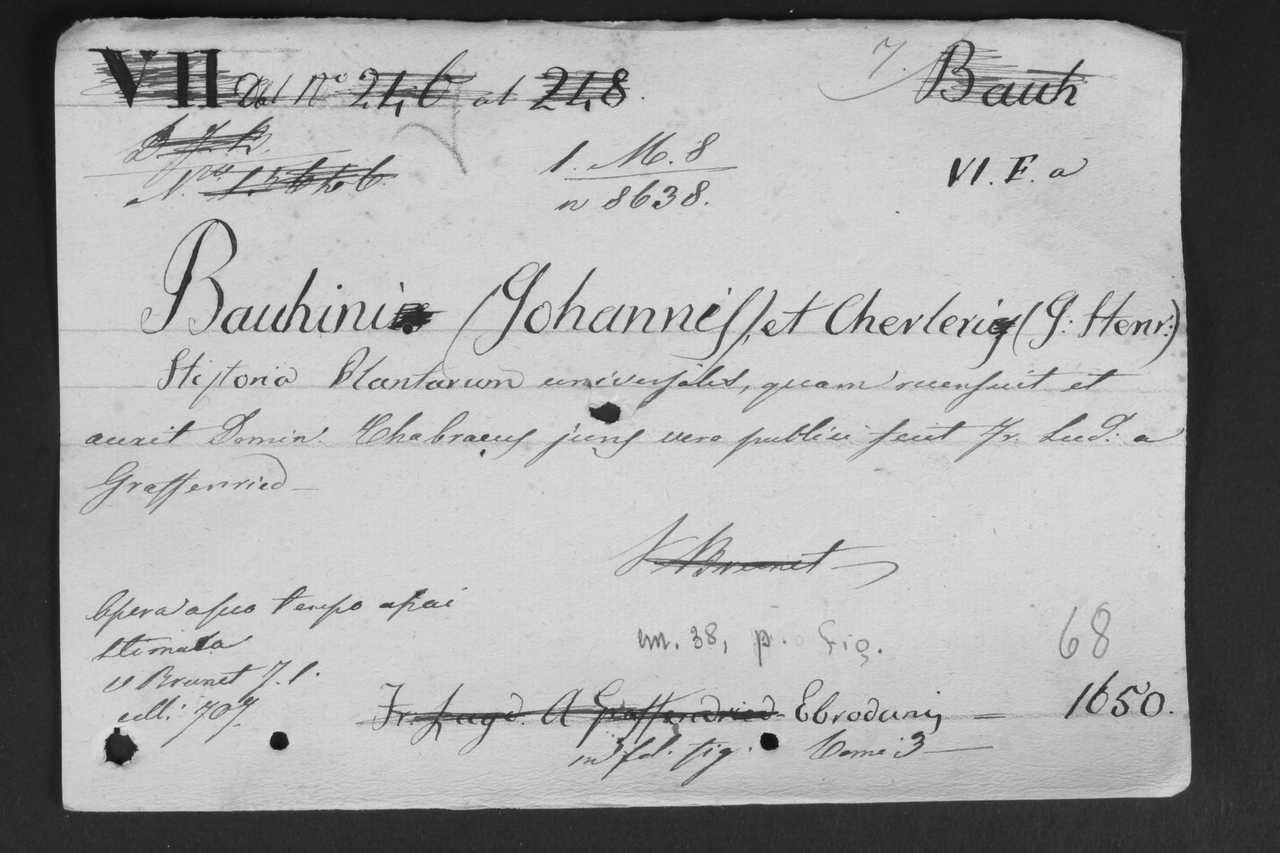 VII Dal N° 246 al 248. 7. Bauh
1. M. 8
n 8638.
VI. F. a
Bauhini (Johannis), et Cherleri (J: Henr:)
Historia Plantarum universalis, quam recensuit et
auxit Domin. Chabraeus juris vero publici fecit Fr. Lud: a
Graffenried
V Brunet
Opera a suo tempo assai
stimata
v Brunet T. 1.
cell: 707.
cm. 38, p. fig.
68
Fr. Lugd. A Graffendried Ebroduni, — 1650.
in fol. fig. Tome 3